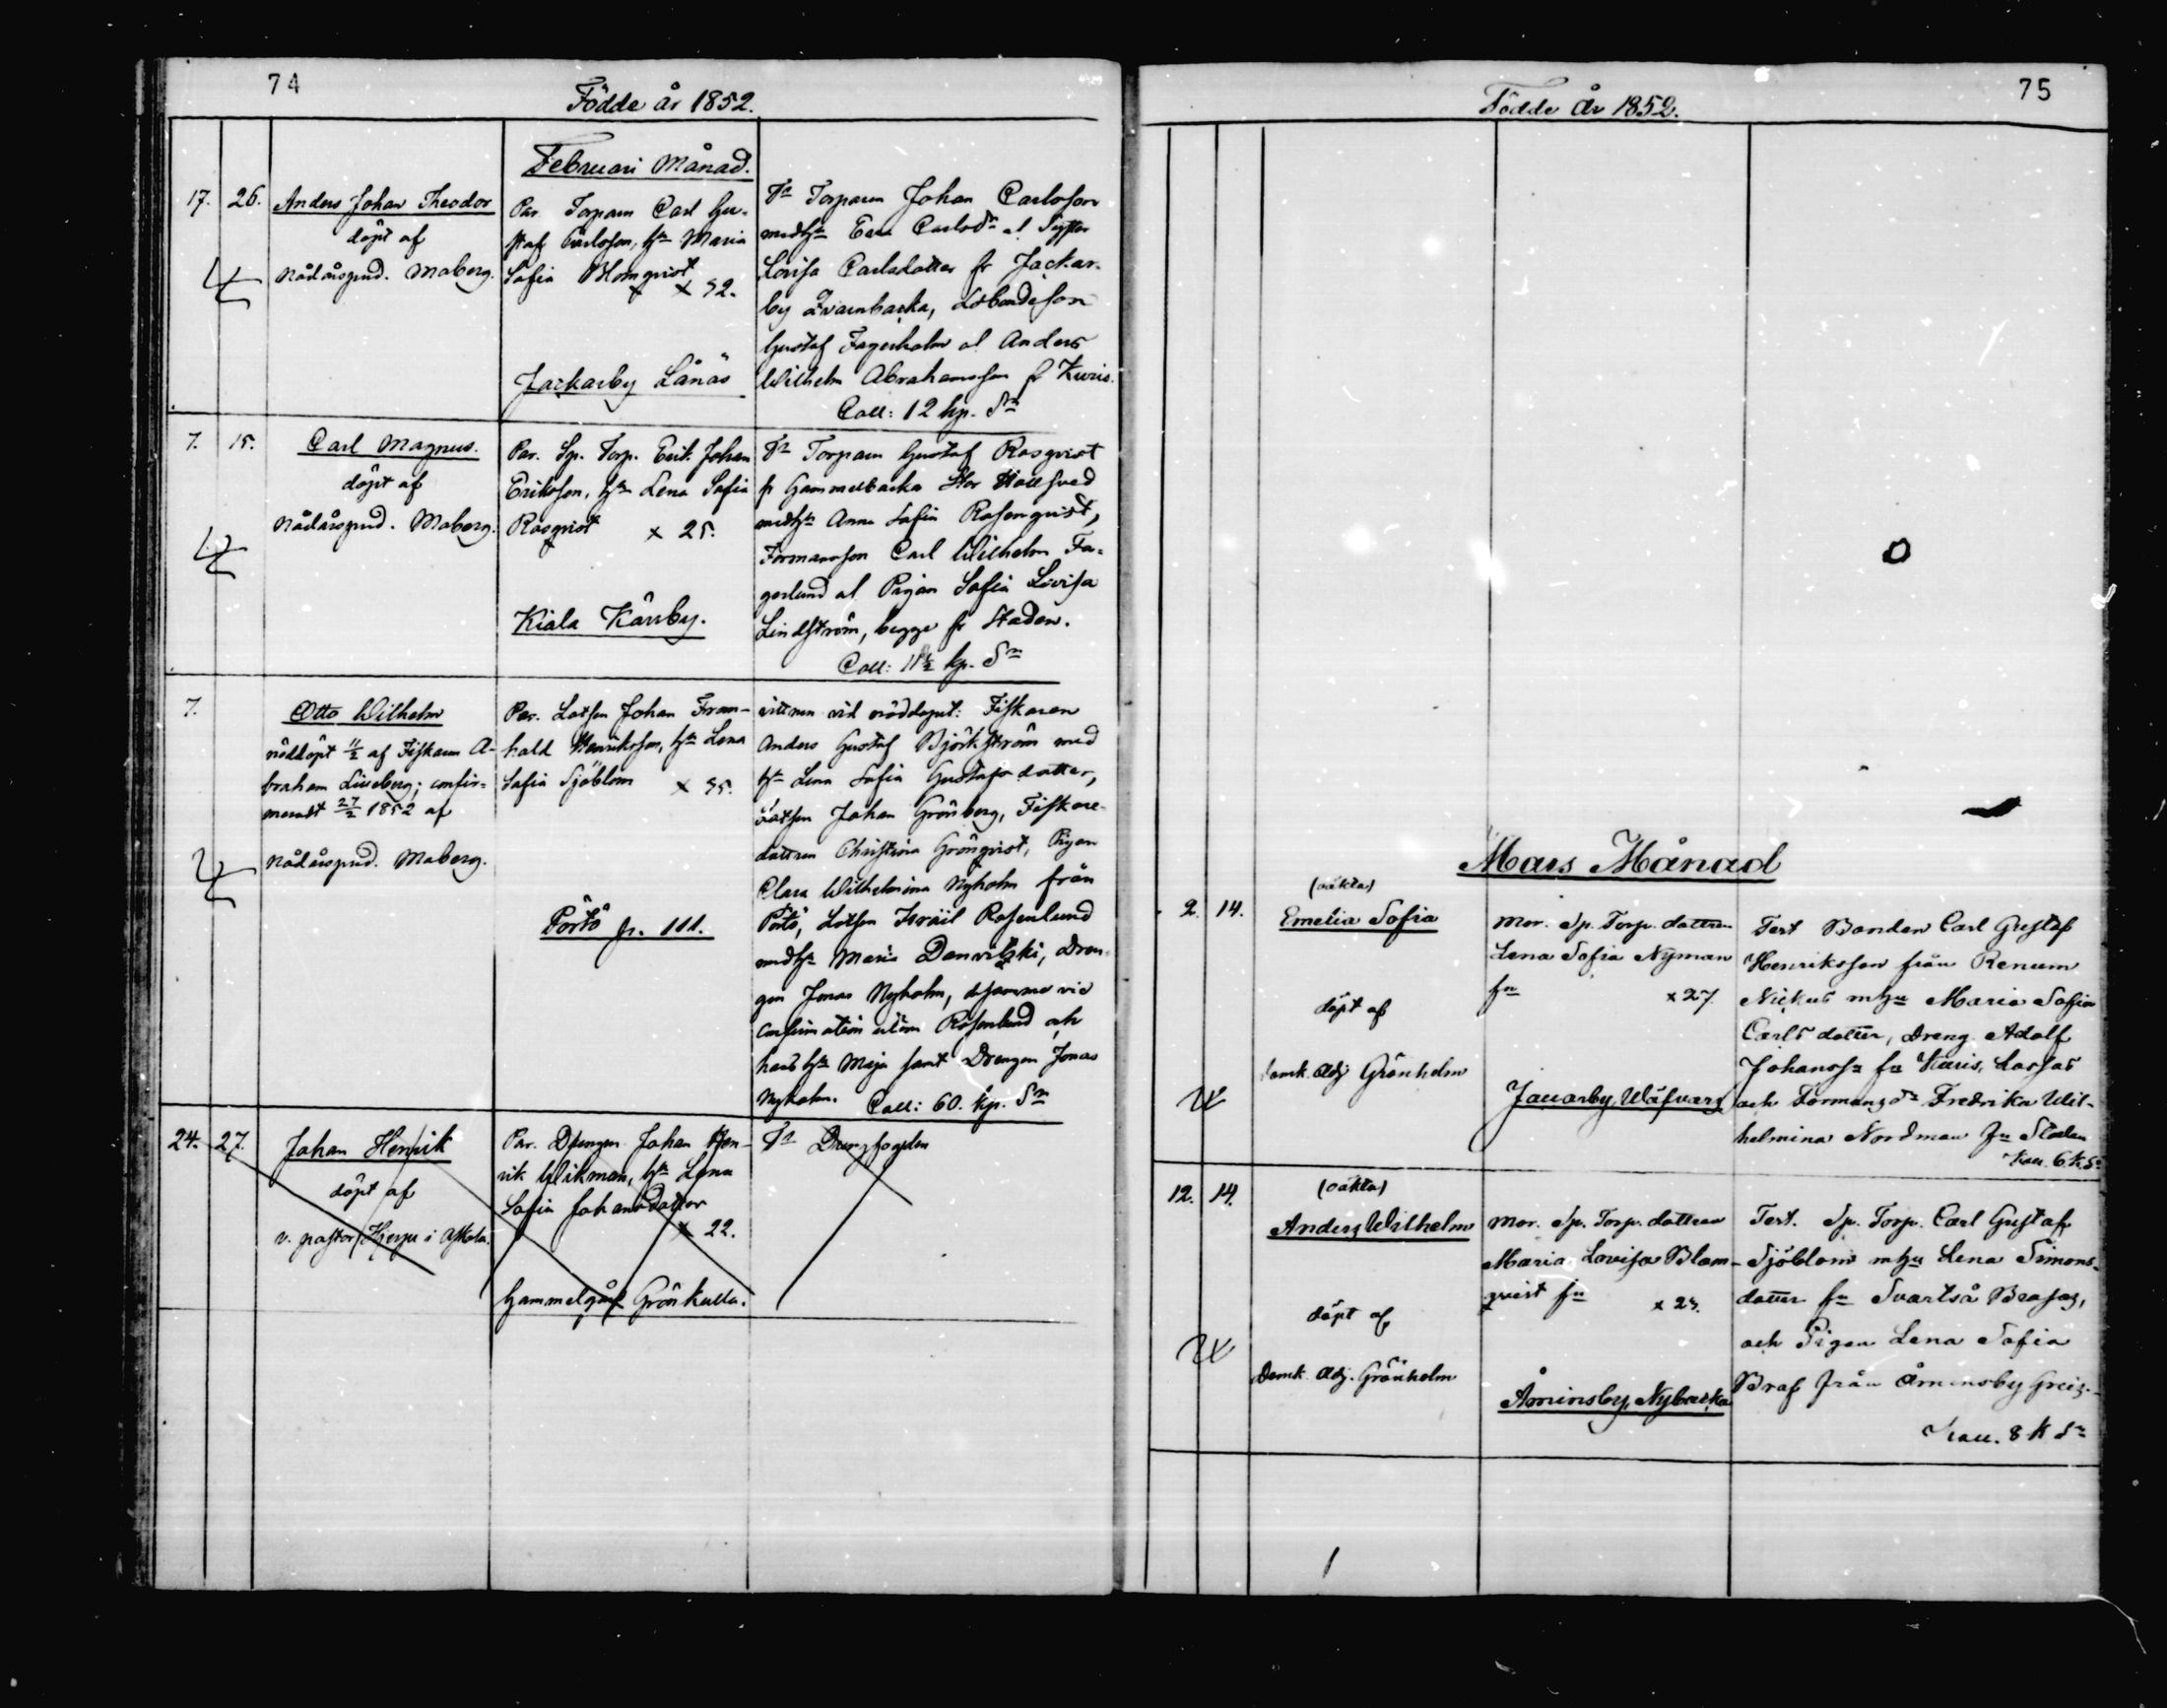 74
Födde år 1852.
Februari Månad.
17. 26. Anders Johan Theodor
döpt af
Nådårspred. Moberg.
Par. Torparen Carl Gu-
staf Carlsson, h:n Maria
Sofia Blomqvist
x 32.
Jackarby Lånäs
Tn Torparen Johan Carlsson
med h:n Eva Carlsdr
Lovisa Carlsdotter fr Jackar-
by Qvarnbacka,
Gustaf Fagerholm o Anders
Wilhelm Abrahamsson fr Kuris.
Coll: 12 kp. Sr
7. 15. Carl Magnus.
döpt af
Nådårspred. Moberg.
Par. Sp. Torp. Erik Johan
Eriksson, h:n Lena Sofia
Rosqvist x 25.
Kiala Kårrby.
Tn Torparen Gustaf Rosqvist
fr Gammelbacka Stor
med h:n Anna Sofia Rosenqvist,
Formansson Carl Wilhelm Fa-
gerlund o Pigan Sofia Lovisa
Lindström, begge fr Staden.
Coll: 11 1/2 kp. Sr
7. Otto Wilhelm
nöddöpt 11/2 af Fiskaren A-
braham Liseberg; confir-
meradt 27/2 1852 af
Nådårspred. Moberg.
Par. Lotsen Johan From-
hold Henriksson, h:n Lena
Sofia Sjöblom x 35.
Pörtö fr. 111.
vittnen vid nöddopet: Fiskaren
Anders Gustaf Björkström med
h:n Lena Sofia Gustafsdotter,
Lotsen Johan Grönberg, Fiskare-
dottren Christina Grönqvist, Pigan
Clara Wilhelmina Nyholm från
Pörtö, Lotsen Israël Rosenlund
med h:n Maria Danvilski, Dren-
gen Jonas Nyholm, desamme vid
confirmation utom Rosenlund och
hans h:n Maja samt Drengen Jonas
Nyholm. Coll: 60. kp. Sr
24. 27. Johan Henrik
döpt af
v. pastor Hjerpe i Askola.
Par. Drengen Johan Hen-
rik Wikman, h:n Lena
Sofia Johansdotter
x 22.
Gammelgård Grönkulla.
Tn Drengfogden
75
Födde År 1852.
Mars Månad
(oäkta)
2. 14. Emelia Sofia
döpt af
Domk. Adj Grönholm
Mor. Sp. Torp. dottren
Lena Sofia Nyman
fn x 27.
Jauarby, Wäfvars
Test Bonden Carl Gustaf
Henriksson från Renum
Nickus m h:u Maria Sofia
Carls dotter, Dreng. Adolf
Johanss:n fr Kuris, Lassas
och Formansdr Fredrika Wil-
helmina Nordman fr Staden
Koll. 6 k Sr
(oäkta)
12. 14. Anders Wilhelm
döpt af
Domk. Adj. Grönholm
Mor. Sp. Torp. dottren
Maria Lovisa Blom-
qvist fn x 23.
Åminsby, Nybacka
Test. Sp. Torp. Carl Gustaf
Sjöblom m h:u Lena Simons-
dotter fr Svartså Brasas,
och Pigan Lena Sofia
Braf från Åminsby Greis.
Koll. 8 k Sr